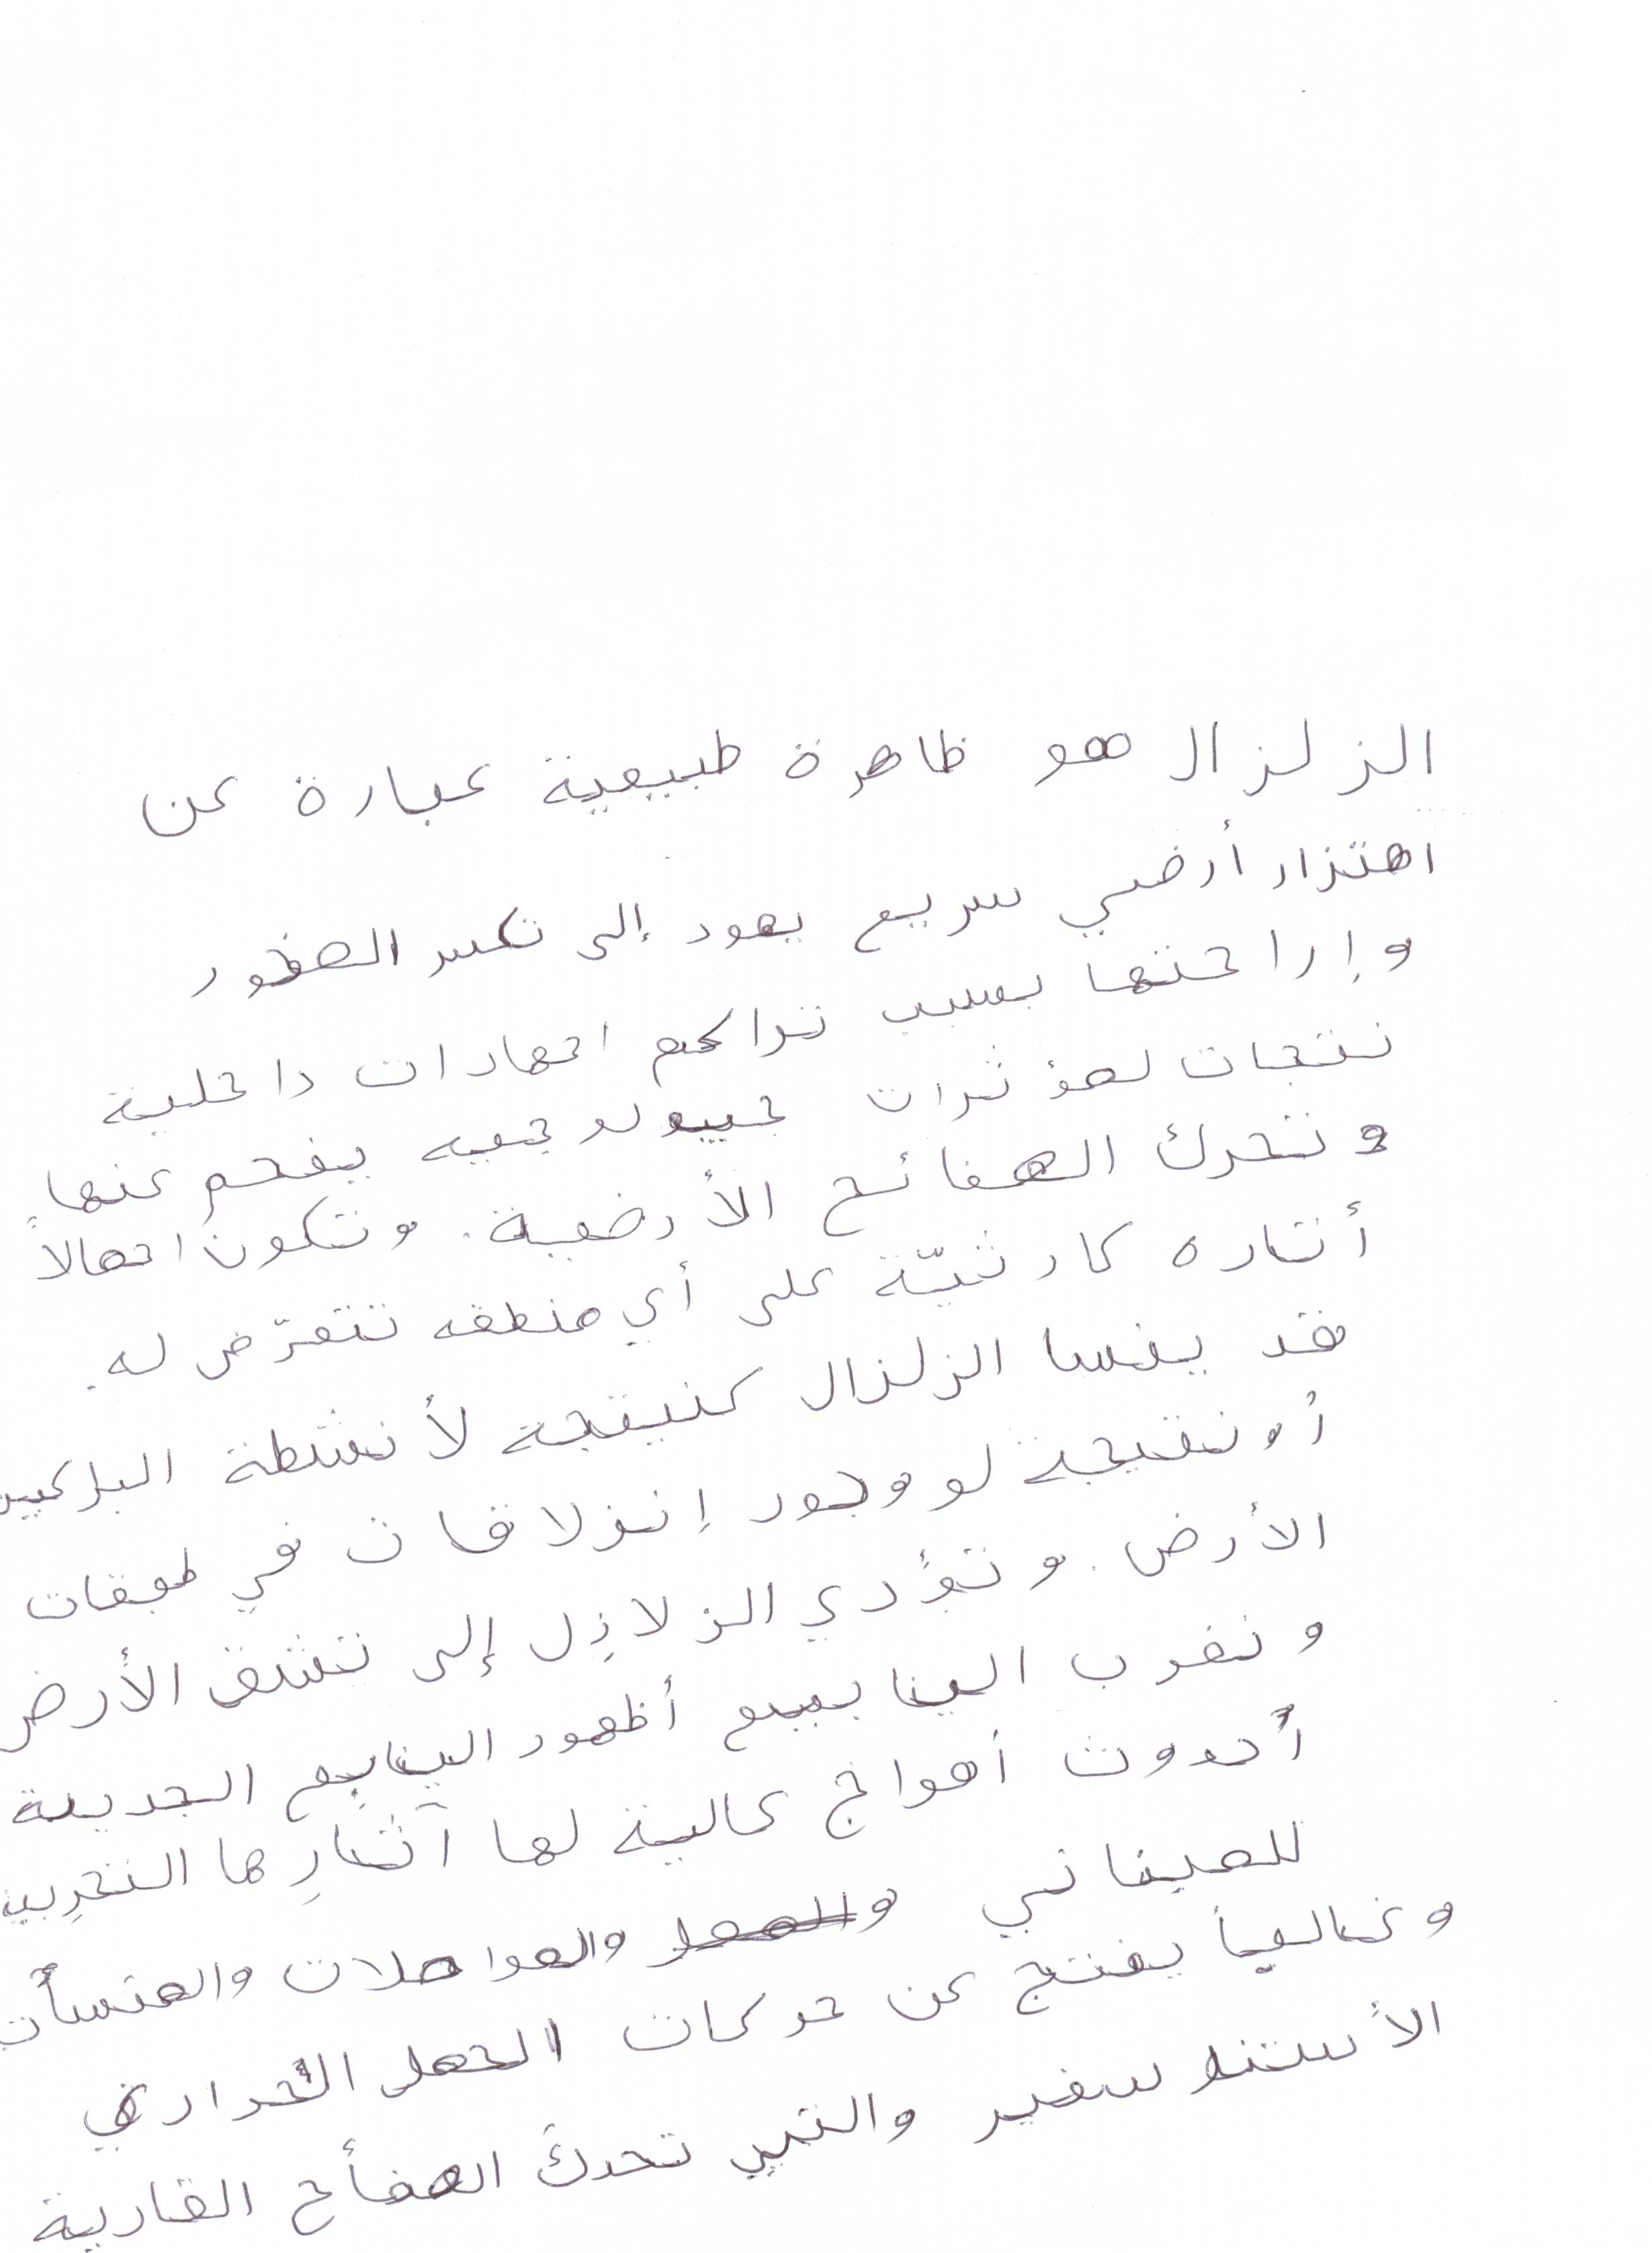 الزلزال هو ظاهرة طبيعية عبارة عن
اهتزاز أرضي سريع يعود إلى تكسر الصخور
وإزاحتها بسبب تراكم اجهادات داخلية
نتجات لمؤثرات جييولوجييه ينجم عنها
و تتحرك الصفائح الأرضية. وتكون اجمالاً
أثاره كارثيّة على أي منطقه تتعرّض له.
قد ينشا الزلزال كنيتجة لأنشطة البراكين
أو نتيجة لو وجود إنزلاقات في طبقات
الأرض. و تؤدي الزلازل إلى تشقق الأرض
ونضوب الينابيع أظهور الينابيع الجديدة
أحدوث أمواج عالية لها آثارِها التخريبية
للميناني والمواصلات والمنشأت
وغالباً ينتج عن حركات الحمل الحراري
الأستنوسفير والتي تحرك الصفأح القارية